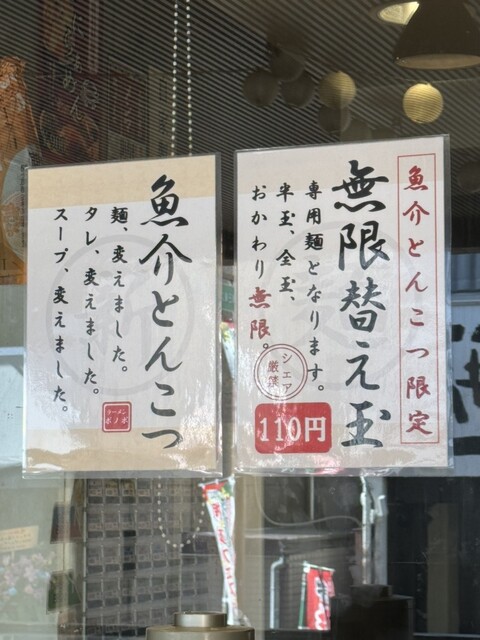 魚介とんこつ限定
無限替え玉
専用麺となります。
半玉、全玉、
おかわり無限。
シェア
厳禁
110円
魚介とんこつ
麺、変えました。
タレ、変えました。
スープ、変えました。
ラーメン
ボノボ